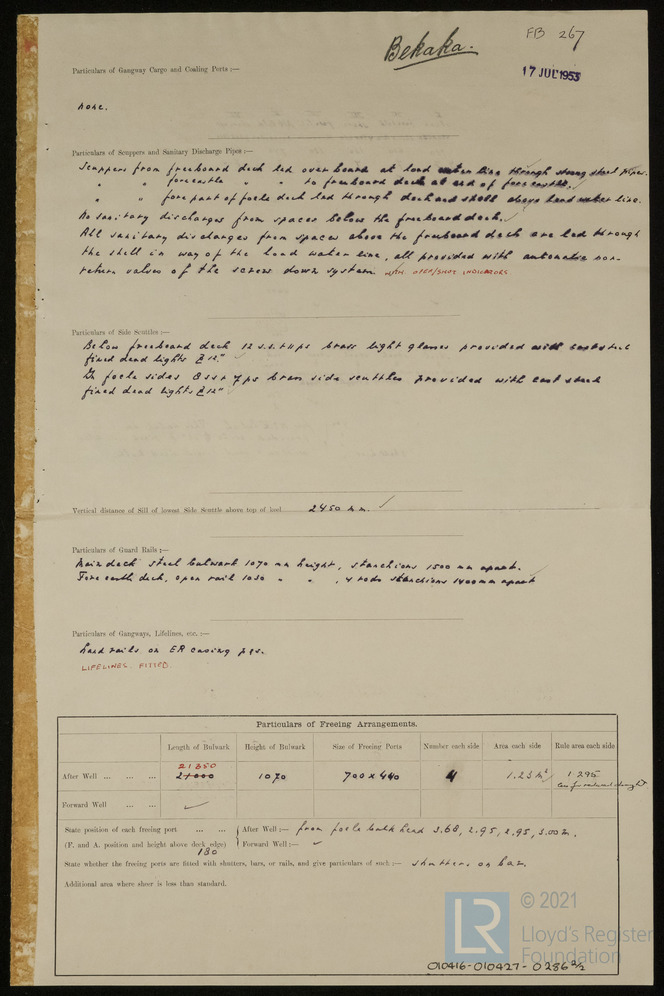 Bekaka.
FB 267
17 JUL 1953
Particulars of Gangway Cargo and Coaling Ports :—
none.
Particulars of Scuppers and Sanitary Discharge Pipes :—
Scuppers from freeboard deck led overboard at load water line through strong steel pipes.
" " forecastle " " to freeboard deck at end of forecastle.
" " fore part of focle deck led through deck and shell above load water line.
No sanitary discharges from spaces below the freeboard deck.
All sanitary discharges from spaces above the freeboard deck are led through
the shell in way of the load water line, all provided with automatic non-
return valves of the screw down system WITH OPEN/SHUT INDICATORS
Particulars of Side Scuttles :—
Below freeboard deck 12 s.s. + 11 ps brass light glasses provided with cast steel
fixed dead lights 12"
In focle sides 8 ss + 7 ps brass side scuttles provided with cast steel
fixed dead lights 12"
Vertical distance of Sill of lowest Side Scuttle above top of keel 2450 mm. ✓
Particulars of Guard Rails :—
Main deck steel bulwark 1070 mm height, stanchions 1500 mm apart.
Fore castle deck, open rail 1030 " " , 4 rods stanchions 1400 mm apart
Particulars of Gangways, Lifelines, etc. :—
hand rails on ER casing
LIFELINES FITTED.
Particulars of Freeing Arrangements.
Length of Bulwark Height of Bulwark Size of Freeing Ports Number each side Area each side Rule area each side
21350
After Well ... ... ... 21000 1070 700 x 440 4 1.23 m² 1.295
less for reduced
Forward Well ... ... ✓
State position of each freeing port ... ... After Well :— from focle bulk head 3.68, 2.95, 2.95, 3.00 m.
(F. and A. position and height above deck edge) Forward Well :— ✓
180
State whether the freeing ports are fitted with shutters, bars, or rails, and give particulars of such :— shutters on bar.
Additional area where sheer is less than standard.
LR
© 2021
Lloyd's Register
Foundation
010416-010427-0286 2/2